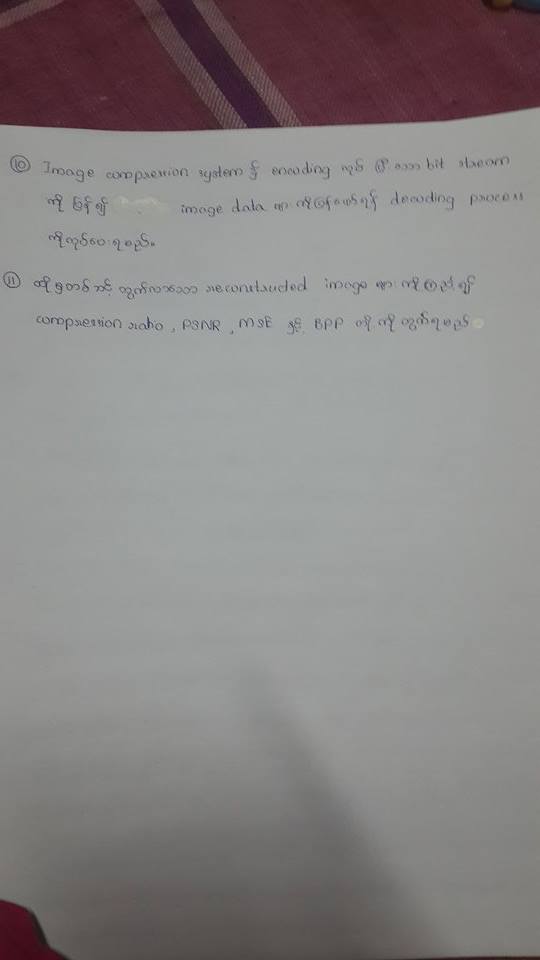 ⑩ Image compression system နှင့် encoding လုပ် ပြီးသော bit stream
ကို ပြန်၍ image data များကိုပြန်ဖော်ရန် decoding process
ကိုလုပ်ပေးရမည်။
⑪ ထို့နောက် ထွက်လာသော reconstructed image များ ကိုကြည့်၍
compression ratio , PSNR , MSE နှင့် BPP တို့ ကို တွက်ရမည်